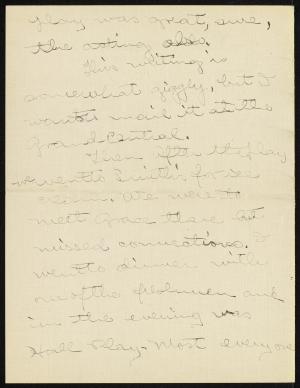 Play was great, sure,
the acting also.
This writing is
somewhat giggly, but I
want to mail it at the
Grand Central.
Then after the play
we went to Smith's for
cream. We were to
meet Grace there but
missed connections. I
went to dinner with
one of the freshmen and
in the evening was
Hall Play. Most everyone